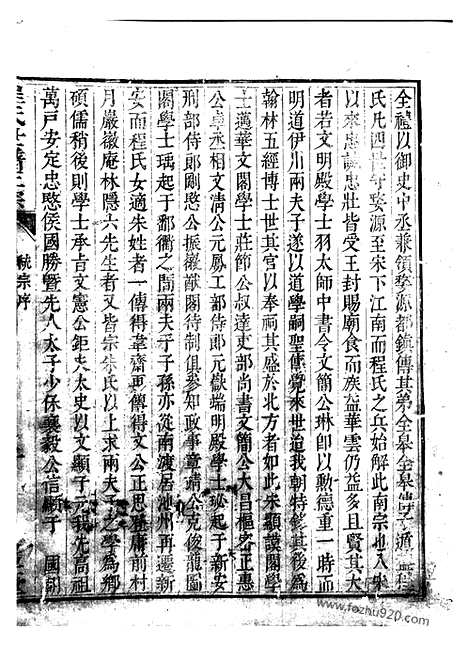 全禮以御史中丞兼領婺源都鎮傳其弟全皋全皋傳子遁程
氏凡四世守婺源至宋下江南而程氏之兵始解此南宗也入宋
以來忠誠忠壯皆受王封賜廟食而族益華雲仍益多且貴其大
者若文明殿學士羽太師中書令文簡公琳即以勲德重一時而
明道伊川兩夫子遂以道學嗣聖傳覺來世追我朝特修其後爲
翰林五經博士世其官以奉祠其盛於北方者如此朱顯謨閣學
士邁華文閣學士莊節公叔達吏部尚書文簡公大昌樞密正惠
公卓相文清公元鳳工部侍郎元嶽端明殿學士珌起于新安
刑部侍郎剛愍公振徽猷閣待制俱參知政事章靖公克俊龍圖
閣學士瑀起于鄱衢之間兩夫子子孫亦從南渡居池州再遷新
安而程氏女適朱姓者一傳得韋齋再傳得文公正思登庸前村
月巖徽庵林隱六先生者又皆宗朱氏以上求兩夫子之學爲鄉
碩儒稍後則學士承旨文憲公鉅夫太史以文顯子元我先高祖
萬戶安定忠愍侯國勝暨先人太子少保襄毅公信顯子 國朝
統宗序
www.fozhu920.com